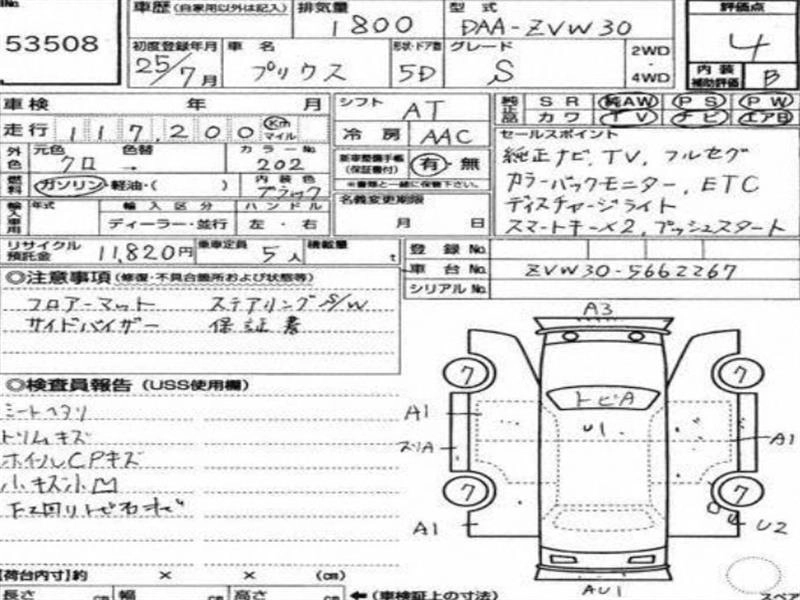 53508
車歴(自家用以外は記入) 排気量 1800 型式 DAA-ZVW30 評価点 4
初度登録年月 25/7月 車名 プリウス 形状・ドア数 5D グレード S 2WD・4WD 内装補助評価 B
車検 年 月 シフト AT 純正品 SR 純AW PS PW
走行 117,200 Km マイル 冷房 AAC カワ TV ナビ エアB
外色 元色 クロ → 色替 カラーNo. 202 新車整備手帳(保証書付) 有・無 ※書類と一緒に保管下さい。
セールスポイント
純正ナビ, TV, フルセグ
カラーバックモニター, ETC
ディスチャージライト
スマートキー×2, プッシュスタート
燃料 ガソリン・軽油・( ) 内装色 ブラック 名義変更期限 月 日
輸入車用 年式 輸入区分 ディーラー・並行 ハンドル 左・右
リサイクル預託金 11,820円 乗車定員 5人 積載量 t 登録No.
車台No. ZVW30-5662267
シリアルNo.
◎注意事項(修復・不具合箇所および状態等)
フロアーマット ステアリングS/W
サイドバイザー 保証書
◎検査員報告(USS使用欄)
シートヘタリ
トリムキズ
ホイールCPキズ
小キズ小凹
A3
トビA
U1.
7
7
7
7
A1
スリA
A1
A1
U2
AU1
【荷台内寸】約 × × (cm)
長さ cm 幅 cm 高さ cm ←(車検証上の寸法)
スペア